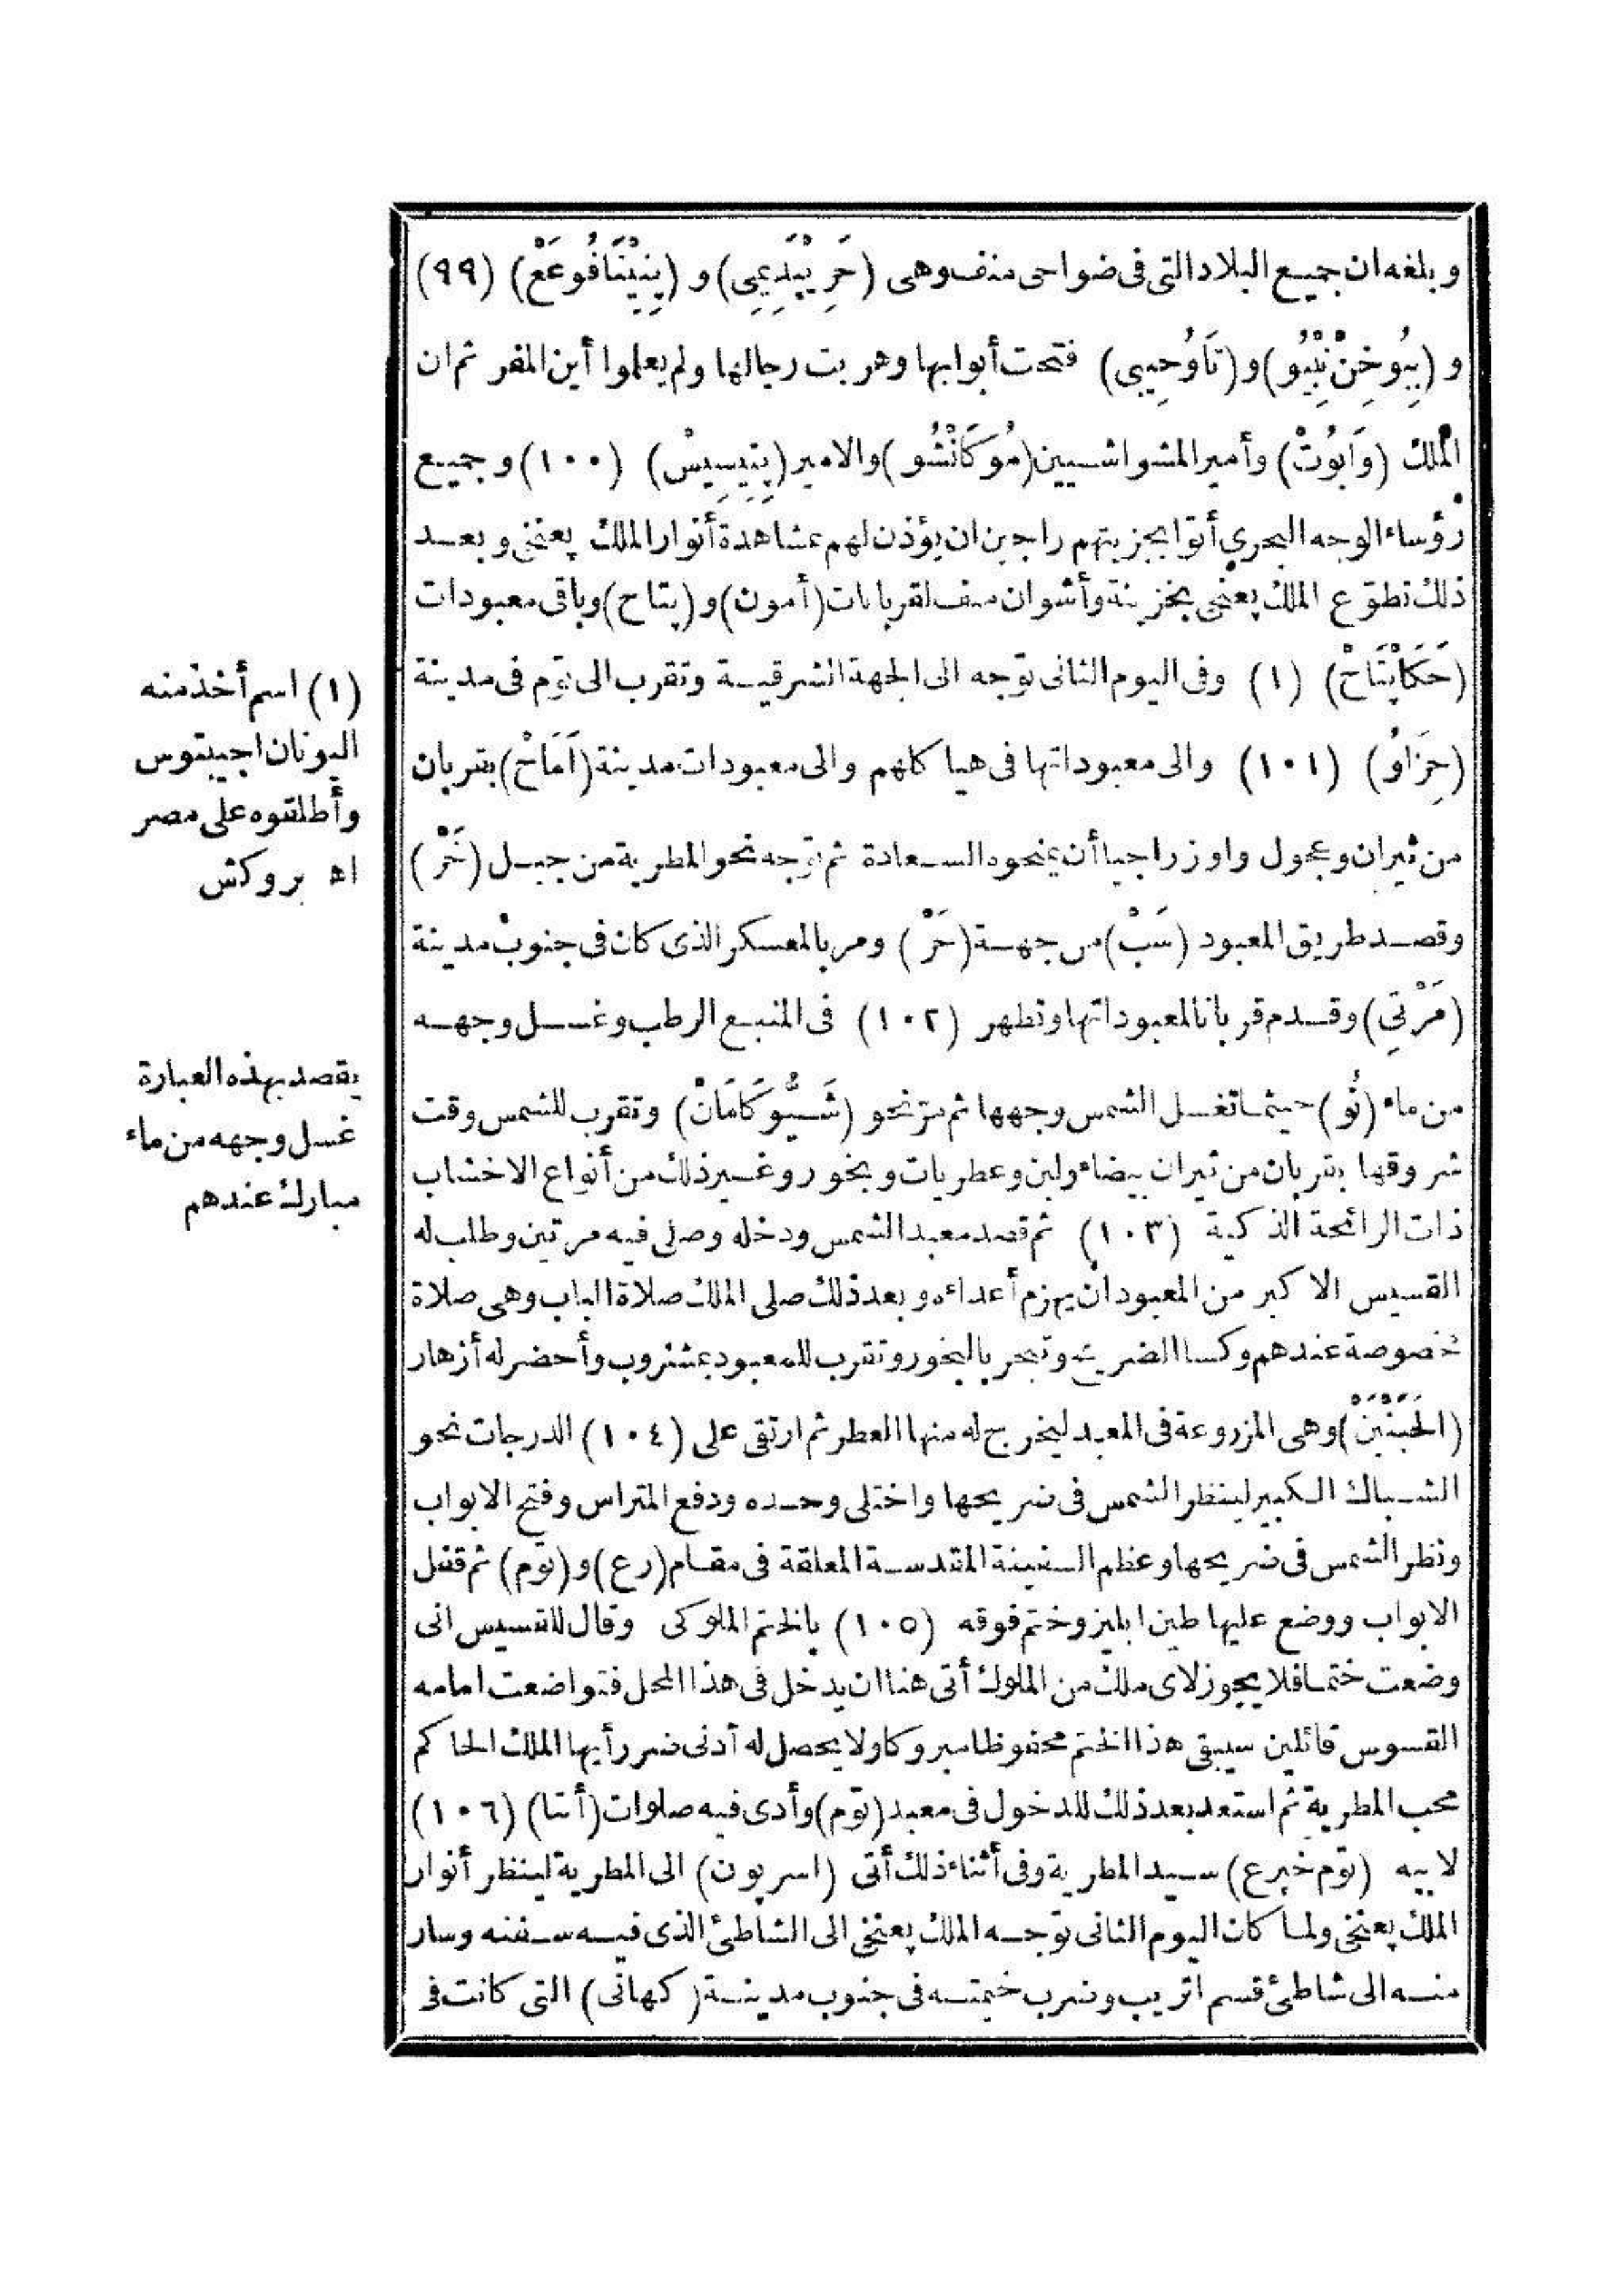 وبلغه ان جميع البلاد التى فى ضواحى منف وهى (حَرِيْپَدِيمِى) و (پِنِيْنَافُوعَعْ) (٩٩)
و (بِيُوخِنْ نِبْيُو) و (تَاوُحِيبى) فتحت أبوابها وهربت رجالها ولم يعلموا أين المفر ثم ان
الملك (وَابُوتْ) وأمير المشواشيين (مُوكَانْشُو) والامير (پِتِيسِيسْ) (١٠٠) وجميع
رؤساء الوجه البحرى أتوا بجزيتهم راجين ان يؤذن لهم بمشاهدة أنوار الملك پعنخى وبعد
ذلك تطوّع الملك پعنخى بخزينة وأشوان منف لقربانات (أمون) و (پتاح) وباقى معبودات
(حَكَاپْتَاحْ) (١) وفى اليوم الثانى توجه الى الجهة الشرقية وتقرب الى توم فى مدينة
(حِزَاوُ) (١٠١) والى معبوداتها فى هياكلهم والى معبودات مدينة (اَمَاحْ) بقربان
من ثيران وعجول واوز راجيا أن يمنحوه السعادة ثم توجه نحو المطرية من جبل (خَرْ)
وقصد طريق المعبود (سَبْ) من جهة (خَرْ) ومر بالمعسكر الذى كان فى جنوب مدينة
(مَرْتِى) وقدم قربانا لمعبوداتها وتطهر (١٠٢) فى المنبع الرطب وغسل وجهه
من ماء (نُو) حيثما تغسل الشمس وجهها ثم مرّ نحو (شَيُّوكَامَانْ) وتقرب للشمس وقت
شروقها بقربان من ثيران بيضاء ولبن وعطريات وبخور وغير ذلك من أنواع الاخشاب
ذات الرائحة الذكية (١٠٣) ثم قصد معبد الشمس ودخله وصلى فيه مرتين وطلب له
القسيس الاكبر من المعبود ان يهزم أعداءه وبعد ذلك صلى الملك صلاة الباب وهى صلاة
مخصوصة عندهم وكسا الضريح وتبخر بالبخور وتقرب للمعبود بمشروب وأحضر له أزهار
(الحَبَنْبَنْ) وهى المزروعة فى المعبد ليخرج له منها العطر ثم ارتقى على (١٠٤) الدرجات نحو
الشباك الكبير لينظر الشمس فى ضريحها واختلى وحده ودفع المتراس وفتح الابواب
ونظر الشمس فى ضريحها وعظم السفينة المقدسة المعلقة فى مقام (رع) و (توم) ثم قفل
الابواب ووضع عليها طين ابليز وختم فوقه (١٠٥) بالختم الملوكى وقال للقسيس انى
وضعت ختما فلا يجوز لاى ملك من الملوك أتى هنا ان يدخل فى هذا المحل فتواضعت امامه
القسوس قائلين سيبقى هذا الختم محفوظا مبروكا ولا يحصل له أدنى ضرر أيها الملك الحاكم
محب المطرية ثم استعد بعد ذلك للدخول فى معبد (توم) وأدى فيه صلوات (أنتا) (١٠٦)
لابيه (توم خپرع) سيد المطرية وفى أثناء ذلك أتى (اسريون) الى المطرية لينظر أنوار
الملك پعنخى ولما كان اليوم الثانى توجه الملك پعنخى الى الشاطئ الذى فيه سفنه وسار
منه الى شاطئ قسم اتريب وضرب خيمته فى جنوب مدينة (كهانى) التى كانت فى
(١) اسم أخذ منه
اليونان اجيبتوس
وأطلقوه على مصر
اه بروكش
يقصد بهذه العبارة
غسل وجهه من ماء
مبارك عندهم